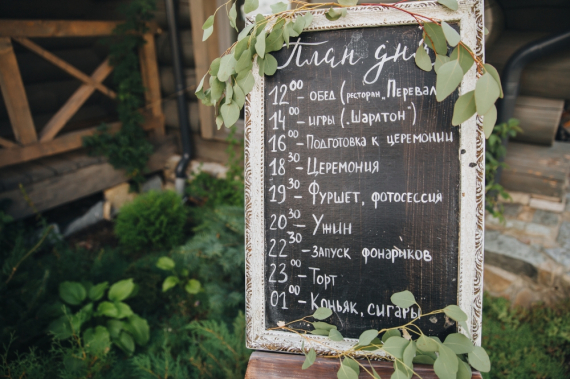 План дня
12⁰⁰ - обед (ресторан „Перевал")
14⁰⁰ - игры („Шарлтон")
16⁰⁰ - Подготовка к церемонии
18³⁰ - Церемония
19³⁰ - Фуршет, фотосессия
20³⁰ - Ужин
22³⁰ - запуск фонариков
23⁰⁰ - Торт
01⁰⁰ - Коньяк, сигары